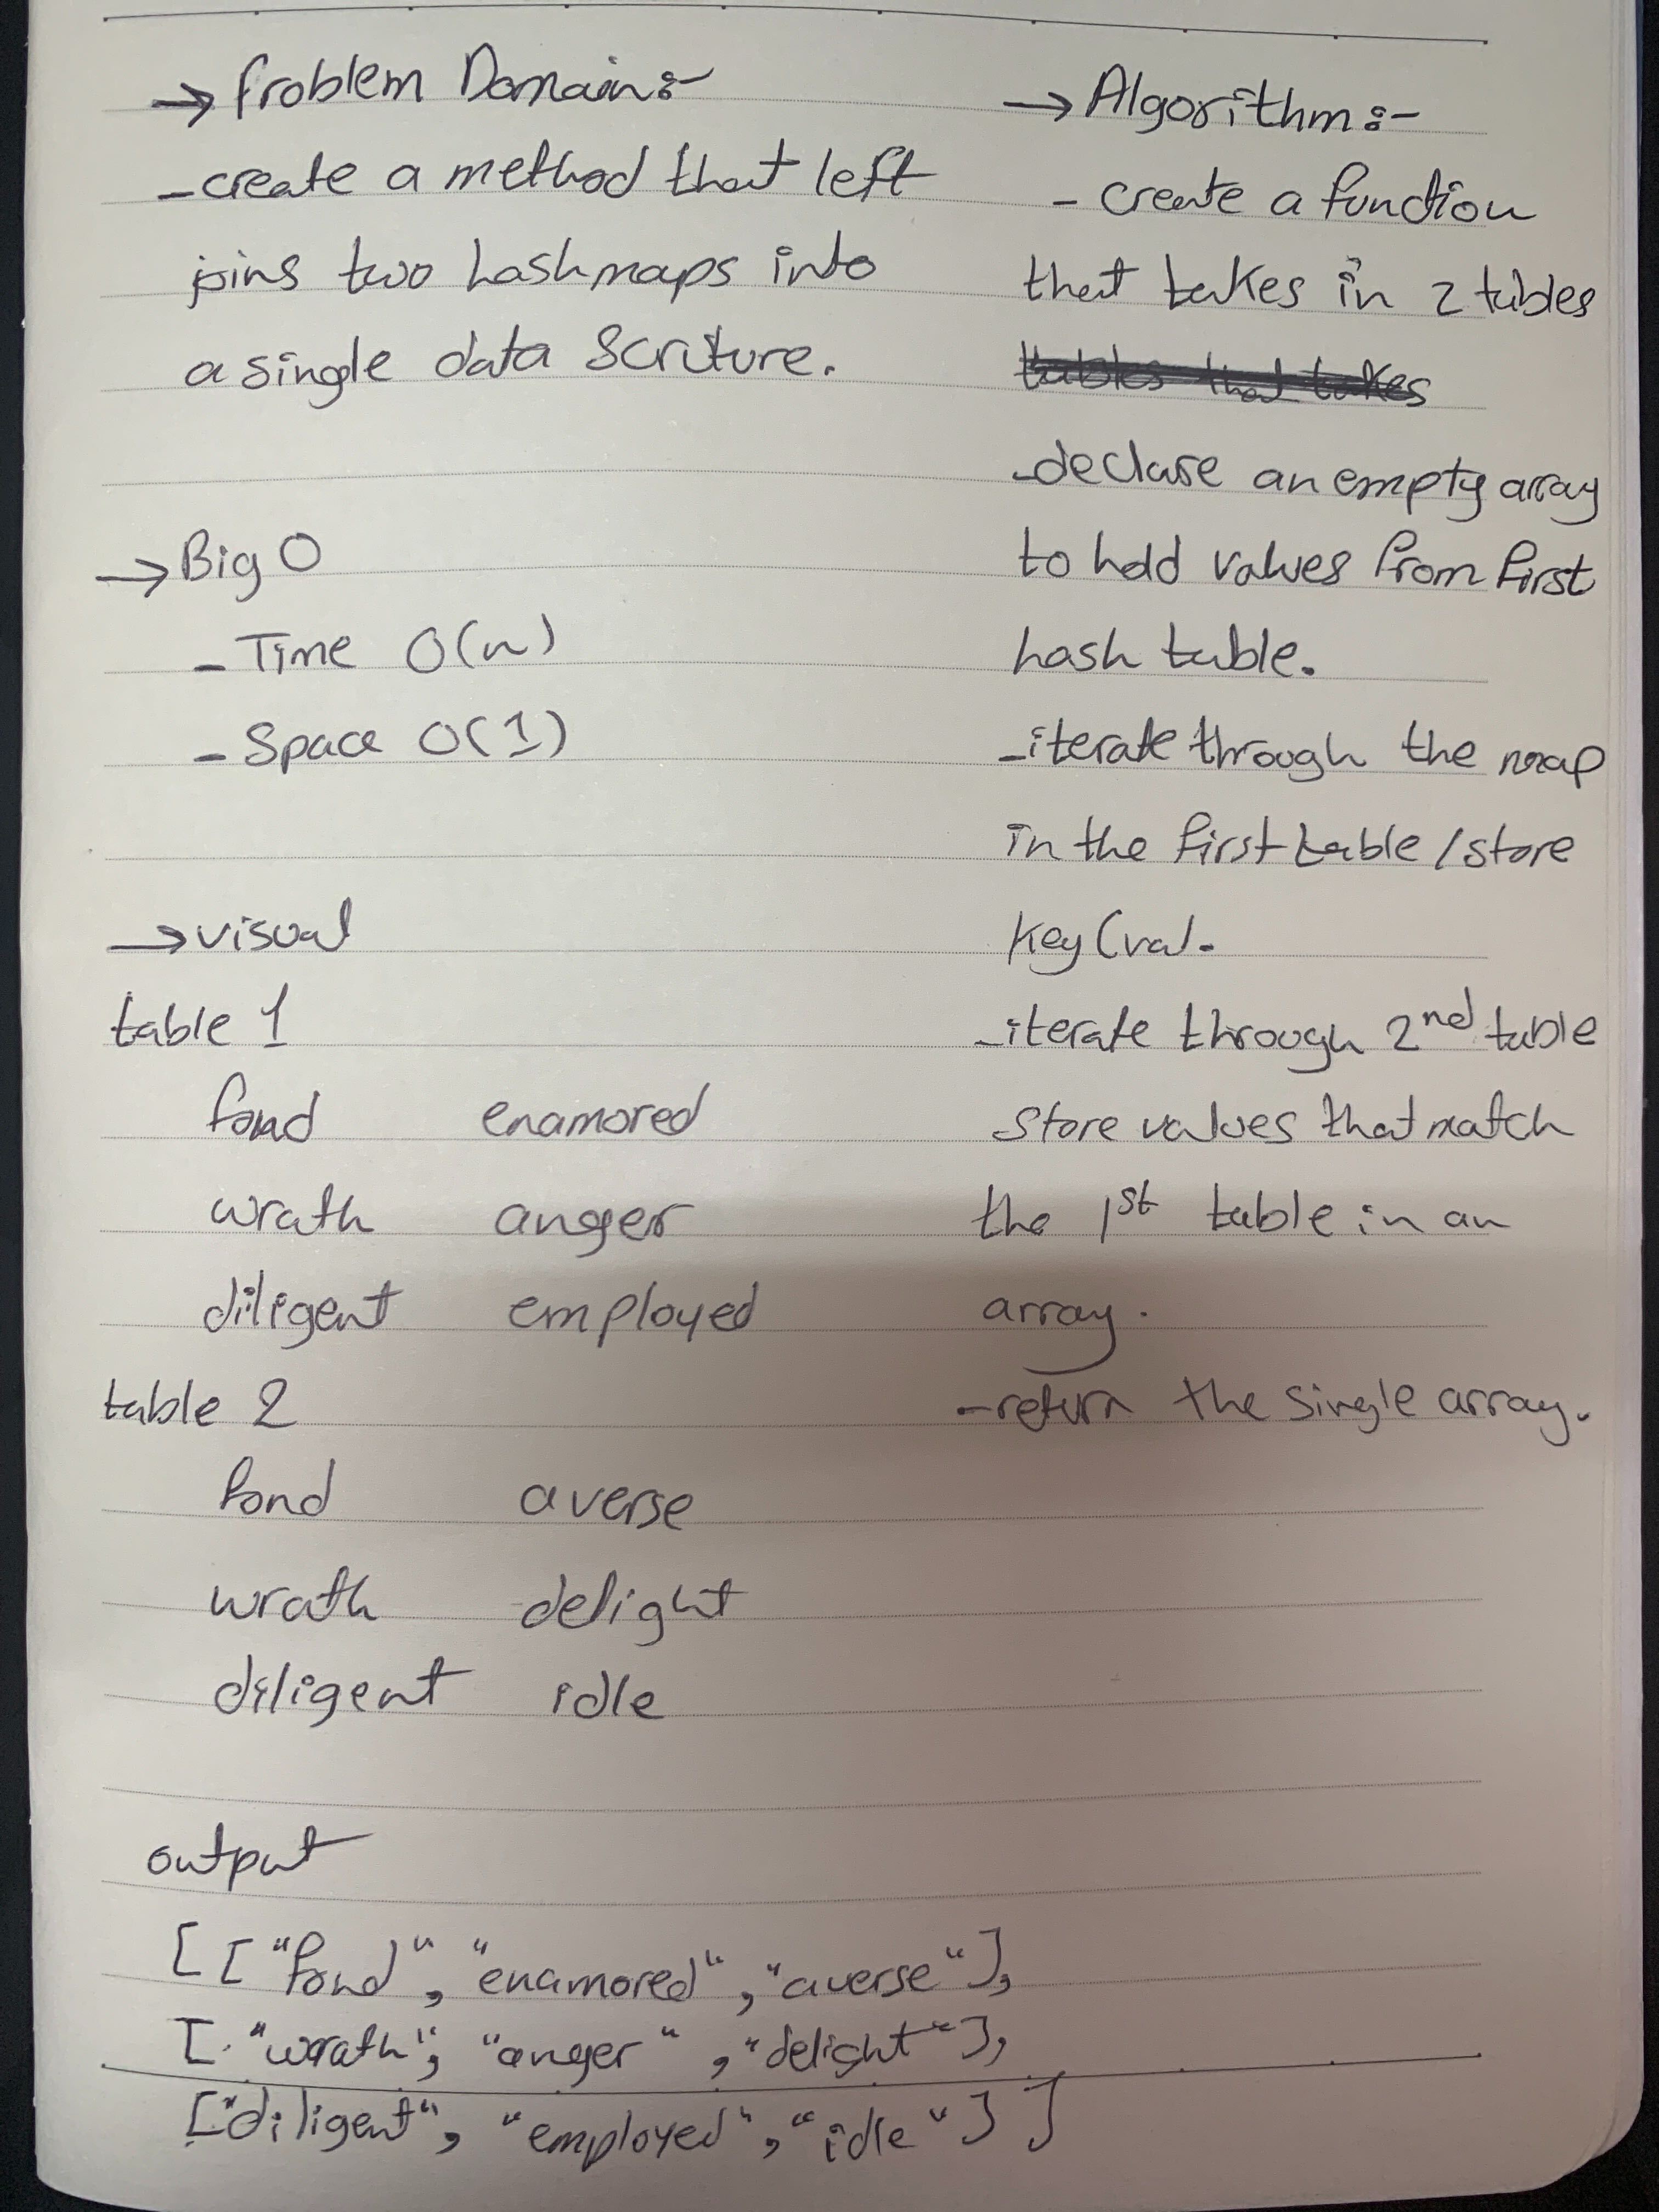 → Problem Domain:-
- create a method that left
joins two hashmaps into
a single data Scruture.
→ Big O
- Time O(n)
- Space O(1)
→ visual
table 1
fond enamored
wrath anger
diligent employed
table 2
fond averse
wrath delight
diligent idle
output
[ [ "fond", "enamored", "averse"],
[ "wrath", "anger", "delight"],
["diligent", "employed", "idle"] ]
→ Algorithm:-
- create a function
that takes in 2 tables
tables that takes
- declare an empty array
to hold values from first
hash table.
- iterate through the map
in the first table / store
key (val.
- iterate through 2nd table
store values that match
the 1st table in an
array.
- return the single array.